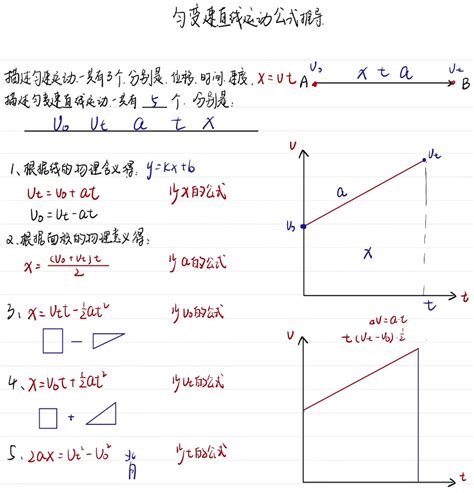 匀变速直线运动公式推导
描述匀速运动一共有3个，分别是，位移，时间，速度，x=vt
A V₀ x t a Vt B
描述匀变速直线运动一共有 5 个，分别是：
V₀ Vt a t x
1、根据线的物理含义得：y=kx+b
Vt=V₀+at 少x的公式
V₀=Vt-at
2、根据面放的物理意义得：
x=(V₀+Vt)t/2 少a的公式
3、x=Vtt-½at² 少V₀的公式
□ - 
4、x=V₀t+½at² 少Vt的公式
□ +
5、2ax=Vt²-V₀² 背 少t的公式
V
Vt
a
V₀
x
t
t
ΔV=a·t
t(Vt-V₀)·½
V
t